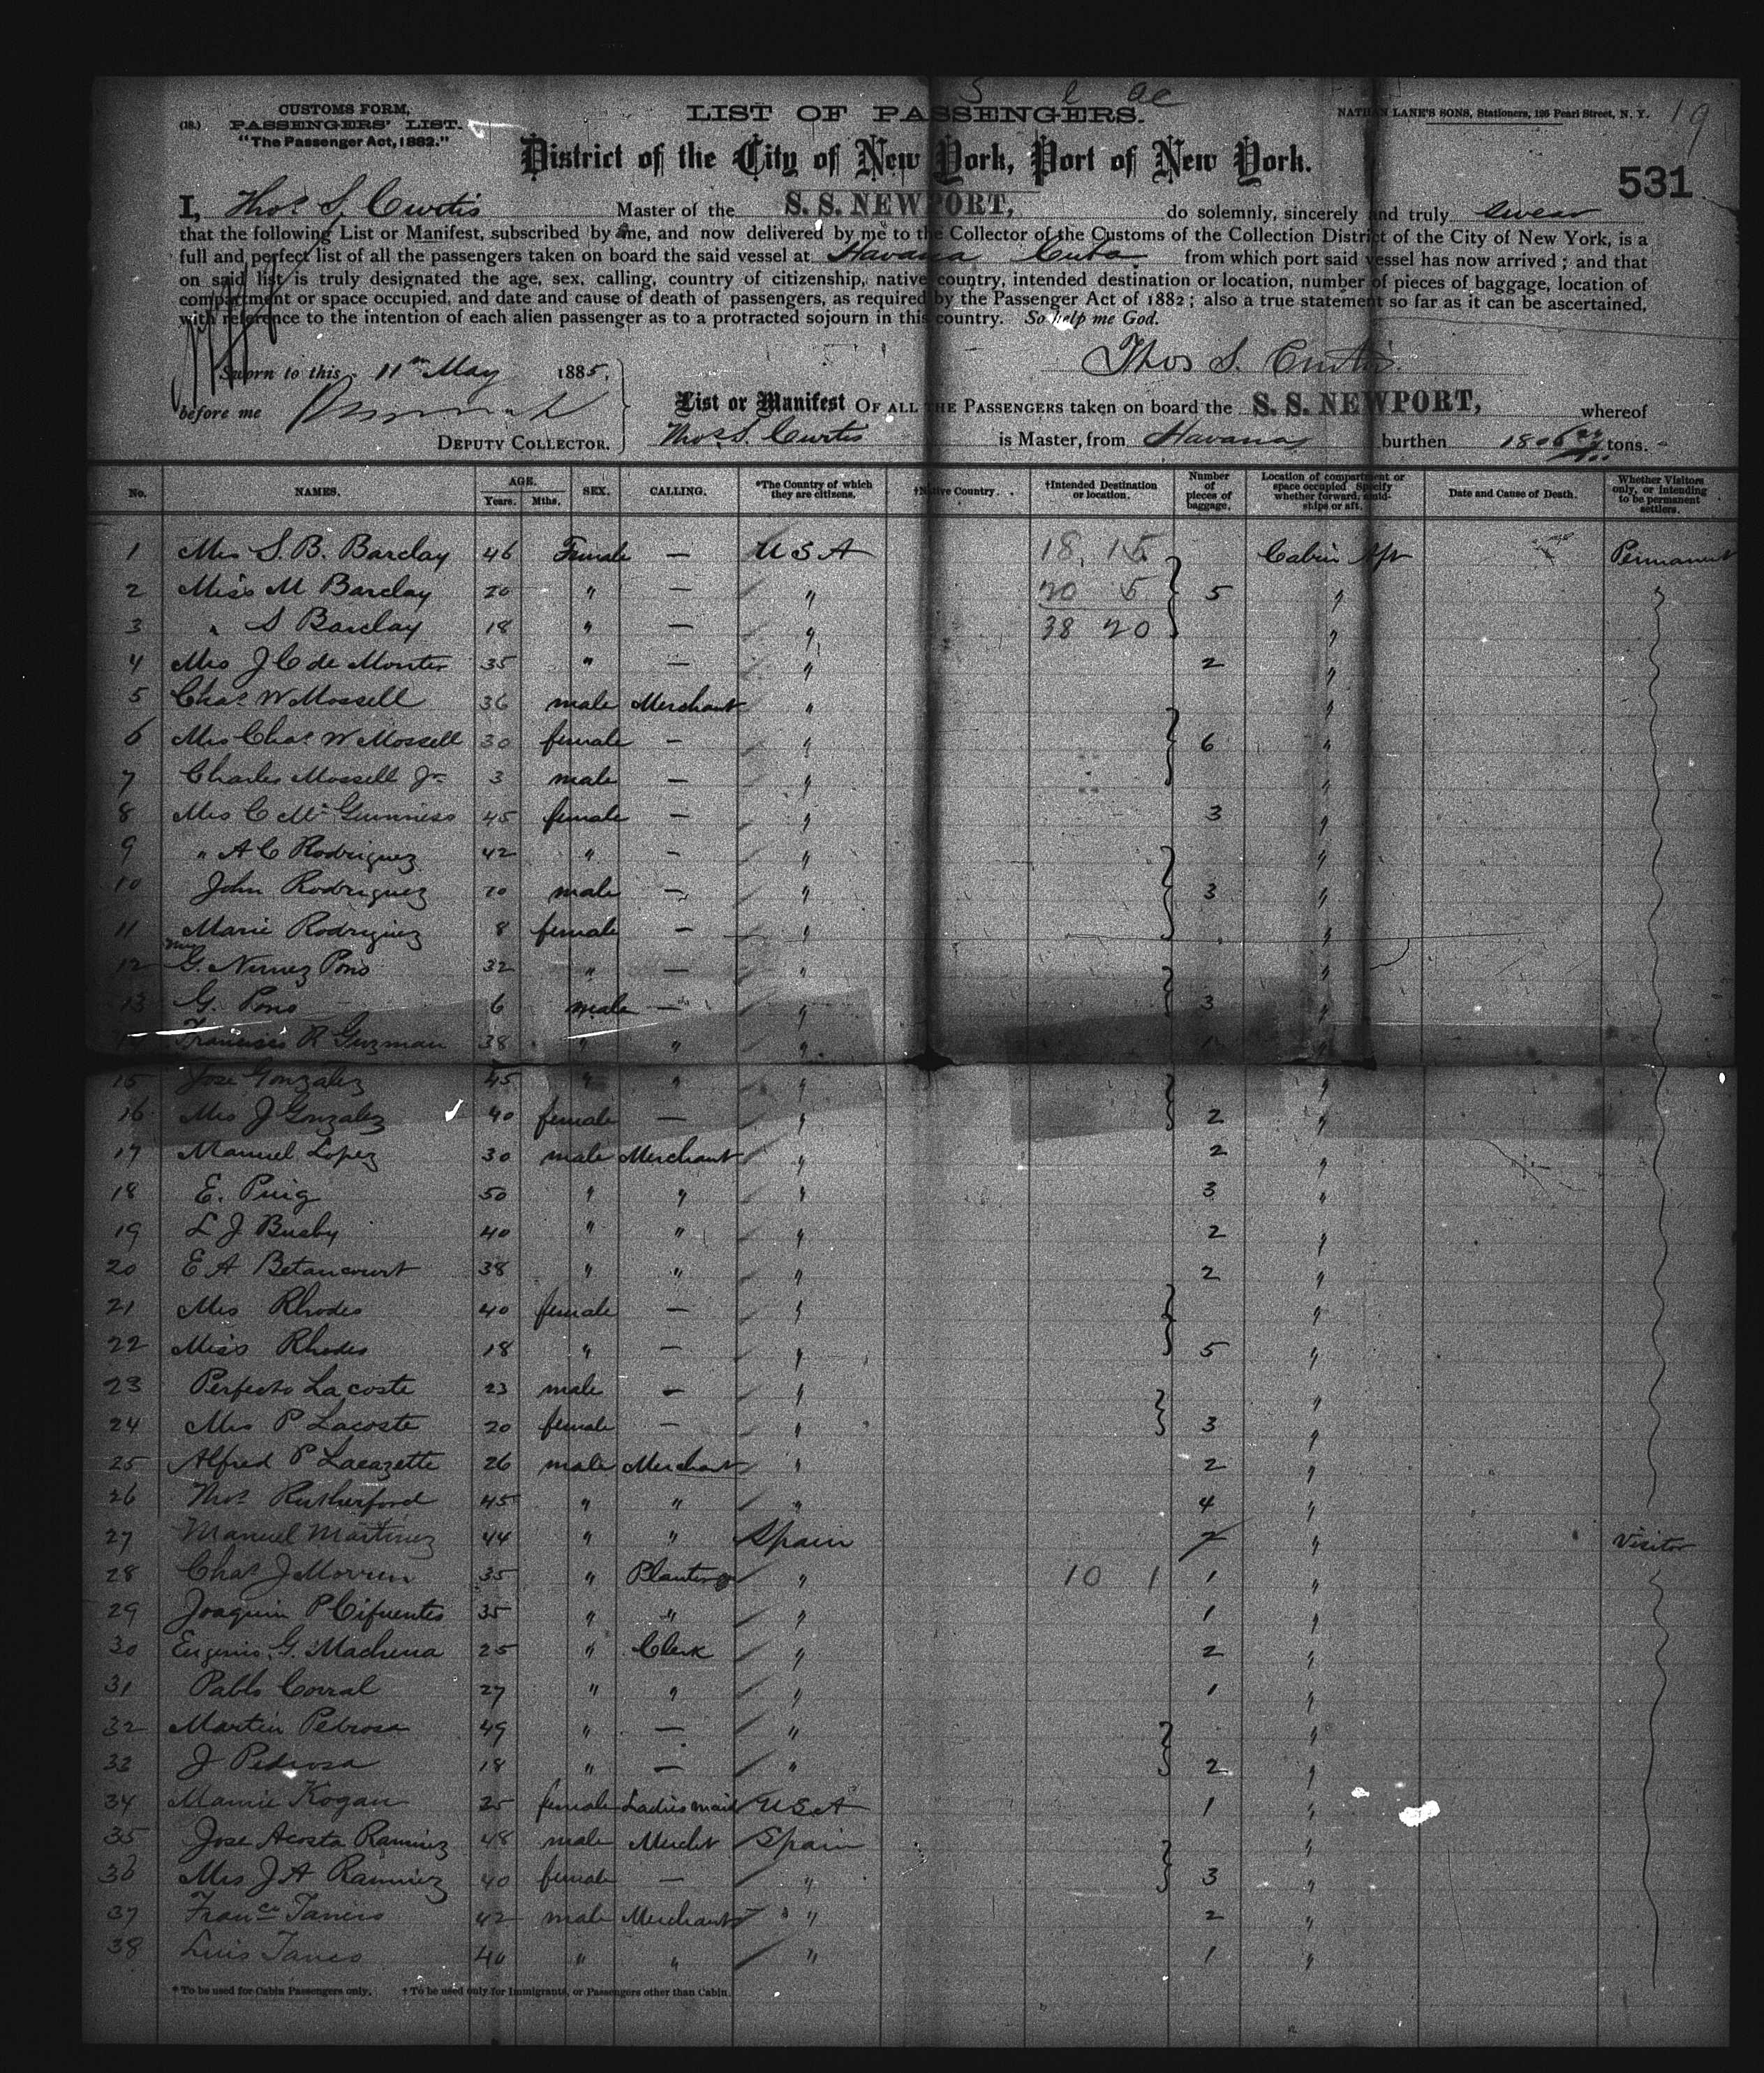 CUSTOMS FORM,
(18.) PASSENGERS' LIST.
"The Passenger Act, 1882."
LIST OF PASSENGERS.
NATHAN LANE'S SONS, Stationers, 126 Pearl Street, N. Y.
19
District of the City of New York, Port of New York.
531
I, Thos. S. Curtis Master of the S. S. NEWPORT, do solemnly, sincerely and truly swear
that the following List or Manifest, subscribed by me, and now delivered by me to the Collector of the Customs of the Collection District of the City of New York, is a
full and perfect list of all the passengers taken on board the said vessel at Havana Cuba from which port said vessel has now arrived; and that
on said list is truly designated the age, sex, calling, country of citizenship, native country, intended destination or location, number of pieces of baggage, location of
compartment or space occupied, and date and cause of death of passengers, as required by the Passenger Act of 1882; also a true statement so far as it can be ascertained,
with reference to the intention of each alien passenger as to a protracted sojourn in this country. So help me God.
Thos S. Curtis.
Sworn to this 11th May 1885,
before me
DEPUTY COLLECTOR.
List or Manifest OF ALL THE PASSENGERS taken on board the S. S. NEWPORT, whereof
Thos S. Curtis is Master, from Havana burthen tons.
No. NAMES. AGE. Years. Mths. SEX. CALLING. *The Country of which they are citizens. †Native Country. †Intended Destination or location. Number of pieces of baggage. Location of compartment or space occupied. Specify whether forward, mid-ships or aft. Date and Cause of Death. Whether Visitors only, or intending to be permanent settlers.
1 Mrs S. B. Barclay 46 Female — U S A 18 15 Cabin Aft Permanent
2 Miss M Barclay 20 " — " 20 5 5 "
3 " S Barclay 18 " — " 38 20 "
4 Mrs J C de Montes 35 " — " 2 "
5 Chas W Mossell 36 male Merchant " "
6 Mrs Chas W Mossell 30 female — " 6 "
7 Charles Mossell Jr 3 male — " "
8 Mrs C McGuinness 45 female — " 3 "
9 " A C Rodriguez 42 " — " "
10 John Rodriguez 10 male — " 3 "
11 Marie Rodriguez 8 female — " "
12 Mrs G. Nunez Pons 32 " — " "
13 G. Pons 6 male — " 3 "
14 Francisco R Guzman 38 " " " 1 "
15 Jose Gonzalez 45 " " " "
16 Mrs J Gonzalez 40 female — " 2 "
17 Manuel Lopez 30 male Merchant " 2 "
18 E. Puig 50 " " " 3 "
19 L J Busby 40 " " " 2 "
20 E A Betancourt 38 " " " 2 "
21 Mrs Rhodes 40 female — " "
22 Miss Rhodes 18 " — " 5 "
23 Perfecto Lacoste 23 male — " "
24 Mrs P Lacoste 20 female — " 3 "
25 Alfred P Lacazette 26 male Merchant " 2 "
26 Thos Rutherford 45 " " " 4 "
27 Manuel Martinez 44 " " Spain 2 " Visitor
28 Chas J 35 " Planter " 10 1 1 "
29 Joaquin P Cifuentes 35 " " " 1 "
30 Eugenio G. Machena 25 " Clerk " 2 "
31 Pablo Corral 27 " " " 1 "
32 Martin Pedrosa 49 " — " "
33 J Pedrosa 18 " — " 2 "
34 Mamie Kogan 25 female Ladies maid U S A 1 "
35 Jose Acosta Ramirez 48 male Mercht Spain "
36 Mrs J A Ramirez 40 female — " 3 "
37 Franco 42 male Merchant " 2 "
38 Luis 40 " " " 1 "
* To be used for Cabin Passengers only. † To be used only for Immigrants, or Passengers other than Cabin.